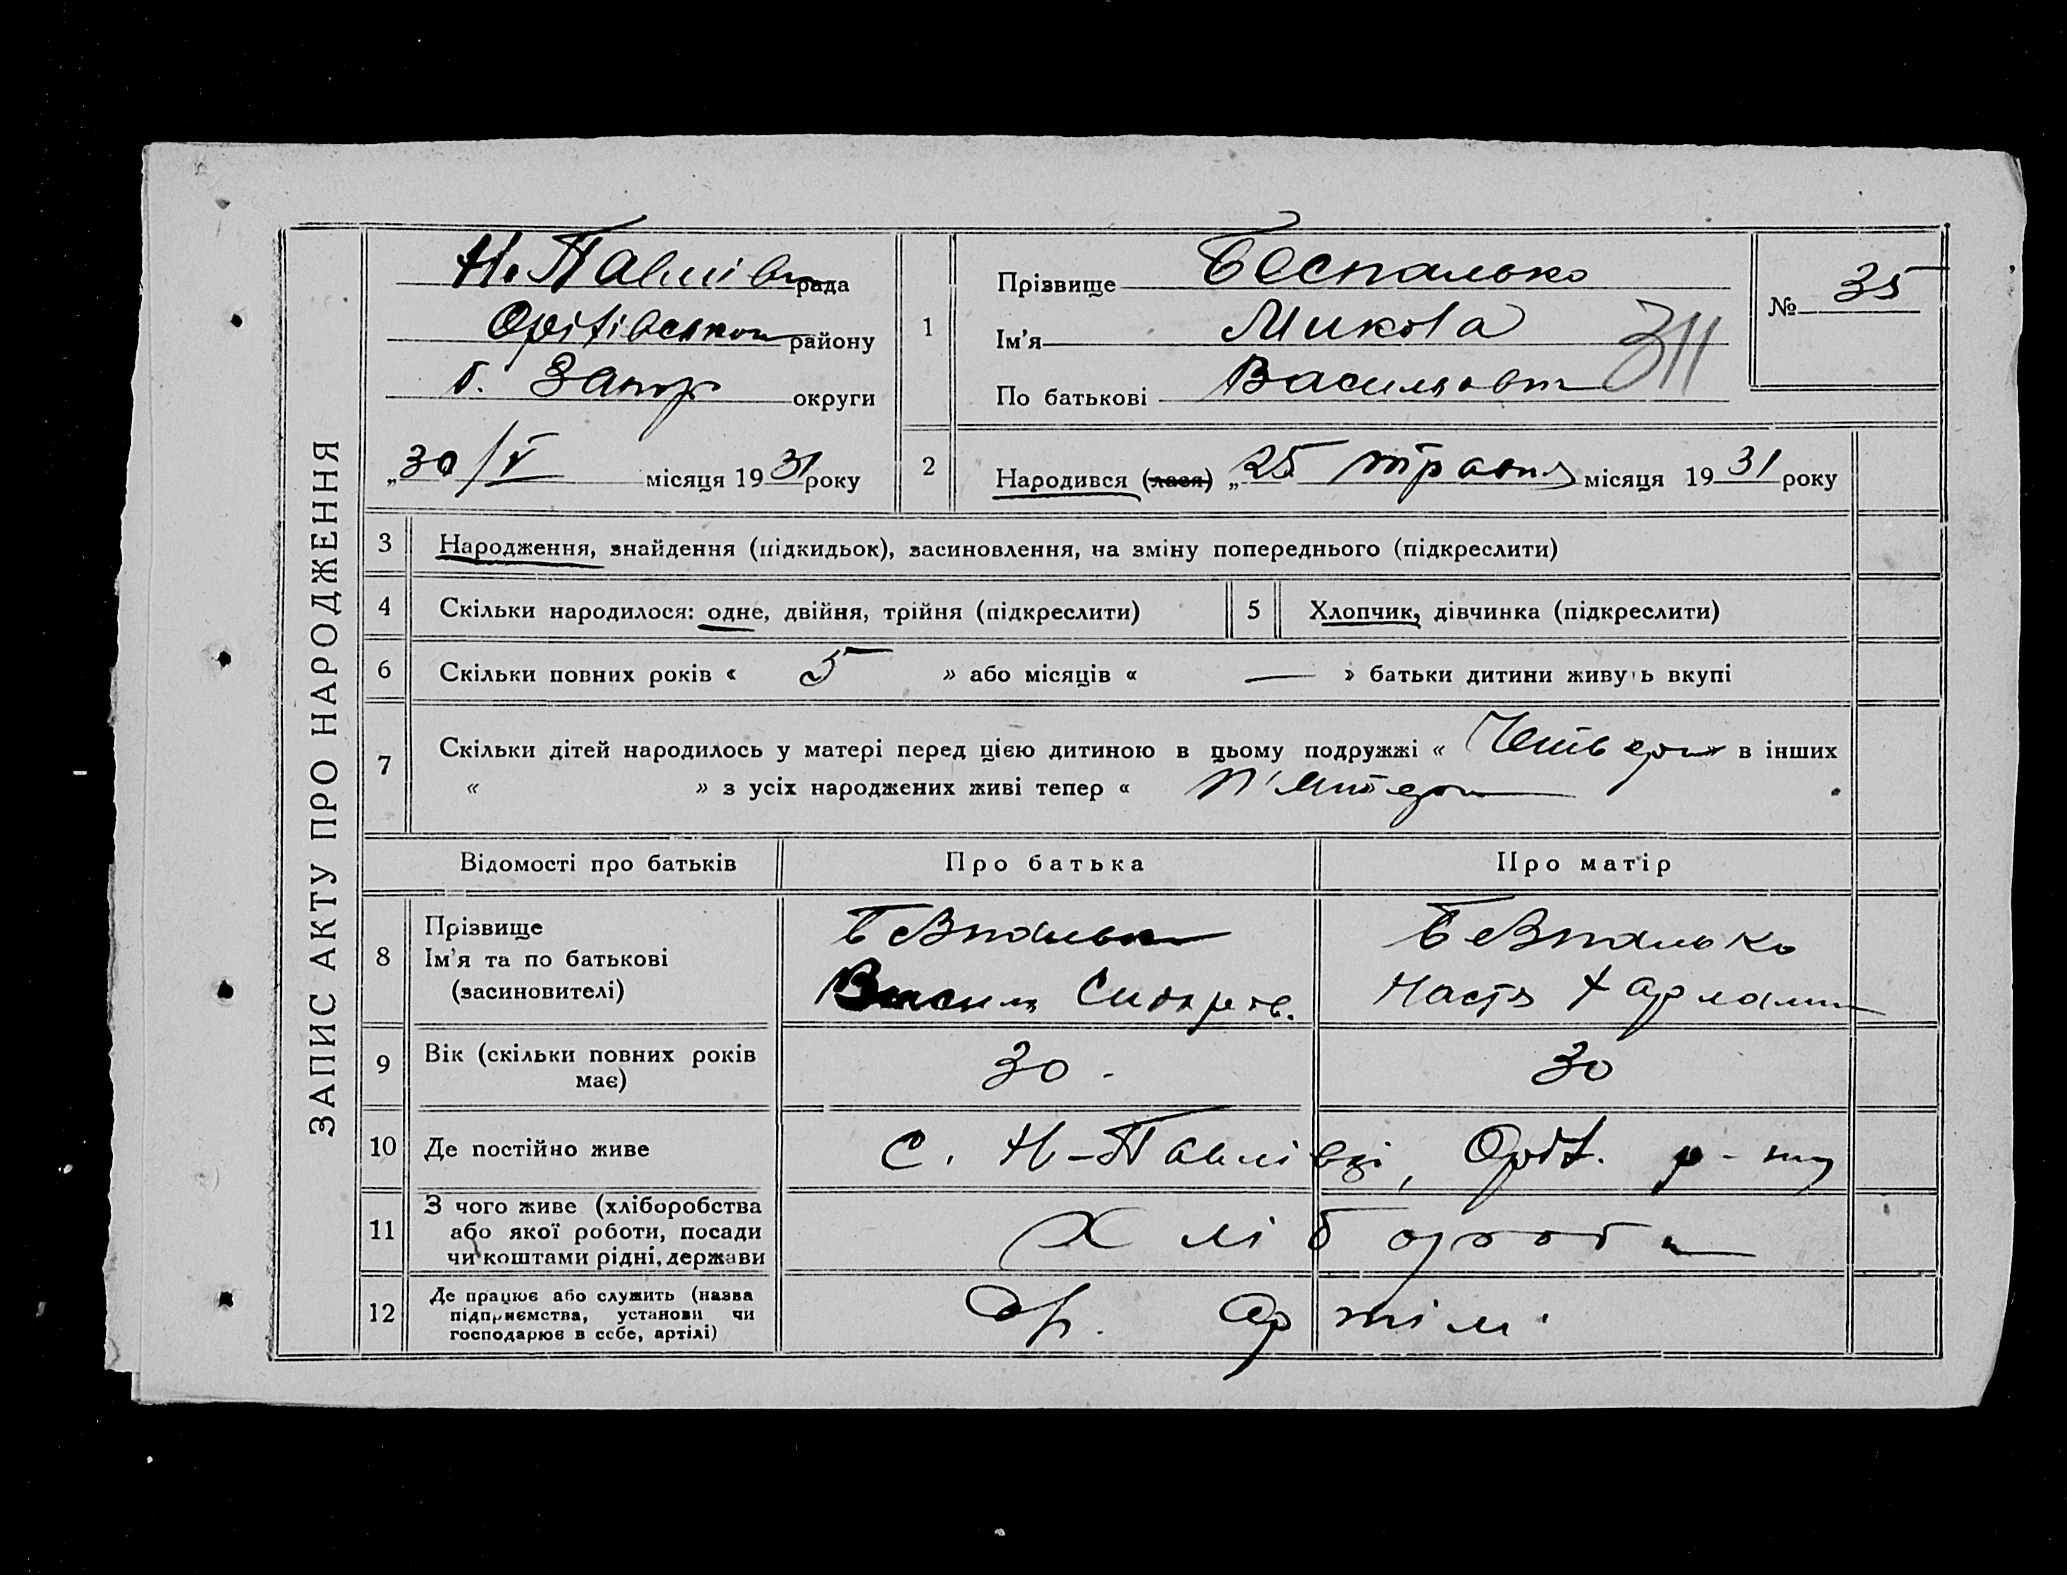 ЗАПИС АКТУ ПРО НАРОДЖЕННЯ
Н. Павлів рада
Оріхівського району
б. Запор округи
„30/V місяця 1931 року
1 Прізвище Беспалько
Ім'я Микола
По батькові Васильович
311
№ 35
2 Народився (лася) „25 травня місяця 1931 року
3 Народження, знайдення (підкидьок), васиновлення, на зміну попереднього (підкреслити)
4 Скільки народилося: одне, двійня, трійня (підкреслити)
5 Хлопчик, дівчинка (підкреслити)
6 Скільки повних років « 5 » або місяців « — » батьки дитини живуть вкупі
7 Скільки дітей народилось у матері перед цією дитиною в цьому подружжі « Четверо » в інших
« » з усіх народжених живі тепер « п'ятеро
Відомості про батьків Про батька Про матір
8 Прізвище
Ім'я та по батькові
(васиновителі)
Безпалько
Василь Сидоров.
Безпалько
Настя Харлам
9 Вік (скільки повних років
має)
30.
30
10 Де постійно живе
с. Н-Павлівці, Оріх. р-ну
11 З чого живе (хліборобства
або якої роботи, посади
чи коштами рідні, держави
Хлібороби
12 Де працює або служить (назва
підприємства, установи чи
господарює в себе, артілі)
артіли